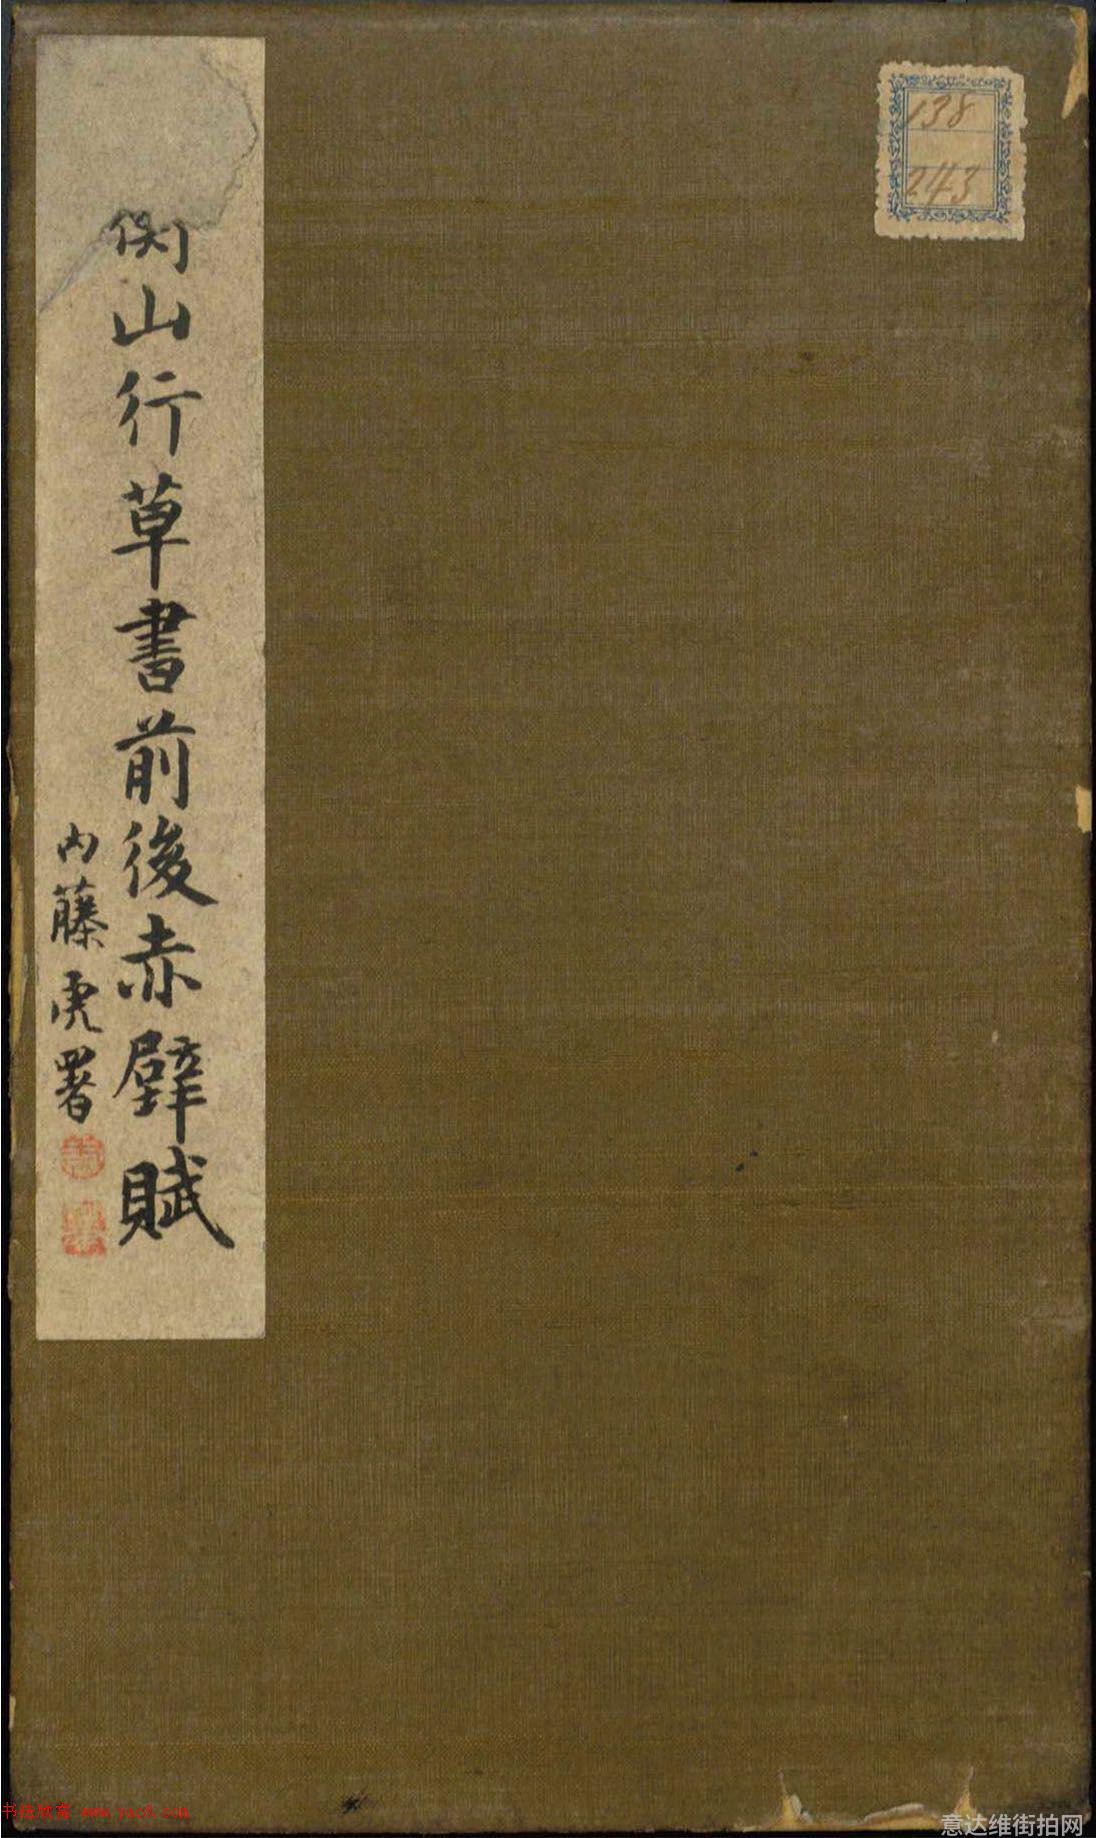 衡山行草書前後赤壁賦
内藤虎署
138
243
书法欣赏 www.yac8.com
意达维街拍网